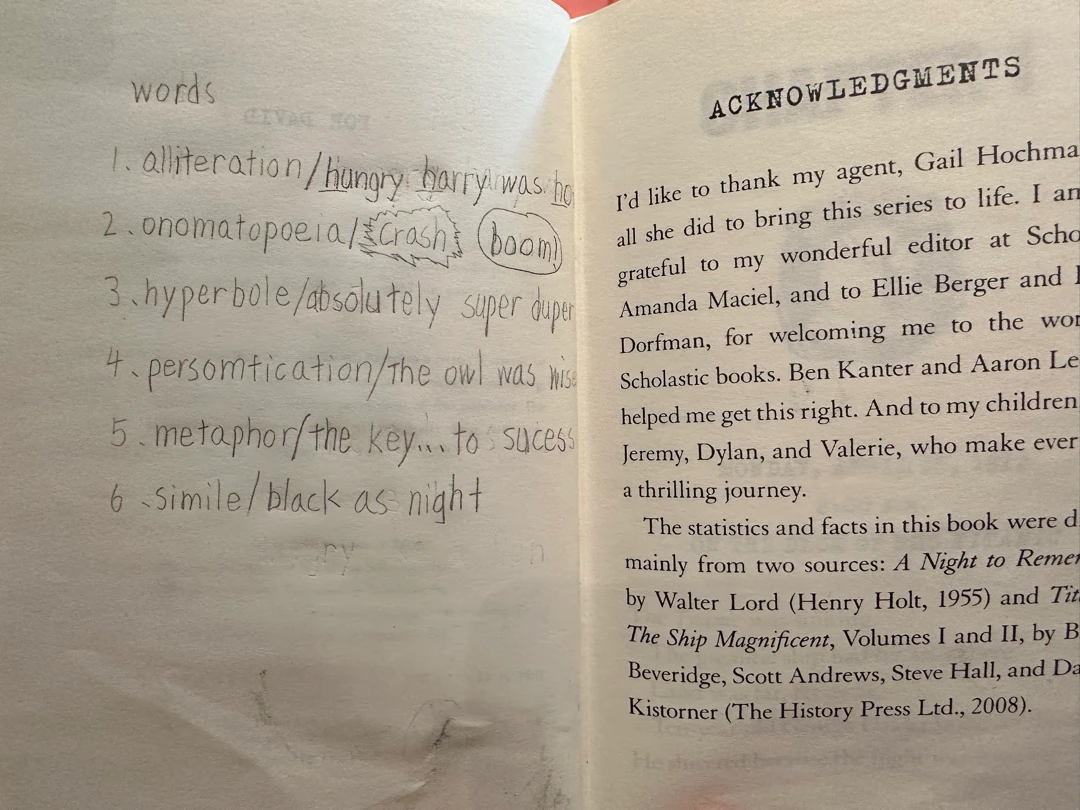 words
1. alliteration/hungry harry was ho
2. onomatopoeia/crash boom!
3. hyperbole/absolutely super duper
4. persomtication/the owl was wise
5. metaphor/the key... to sucess
6. simile/black as night
ACKNOWLEDGMENTS
I'd like to thank my agent, Gail Hochma
all she did to bring this series to life. I am
grateful to my wonderful editor at Scho
Amanda Maciel, and to Ellie Berger and
Dorfman, for welcoming me to the wor
Scholastic books. Ben Kanter and Aaron Le
helped me get this right. And to my children
Jeremy, Dylan, and Valerie, who make ever
a thrilling journey.
The statistics and facts in this book were d
mainly from two sources: A Night to Remem
by Walter Lord (Henry Holt, 1955) and Tit
The Ship Magnificent, Volumes I and II, by B
Beveridge, Scott Andrews, Steve Hall, and Da
Kistorner (The History Press Ltd., 2008).